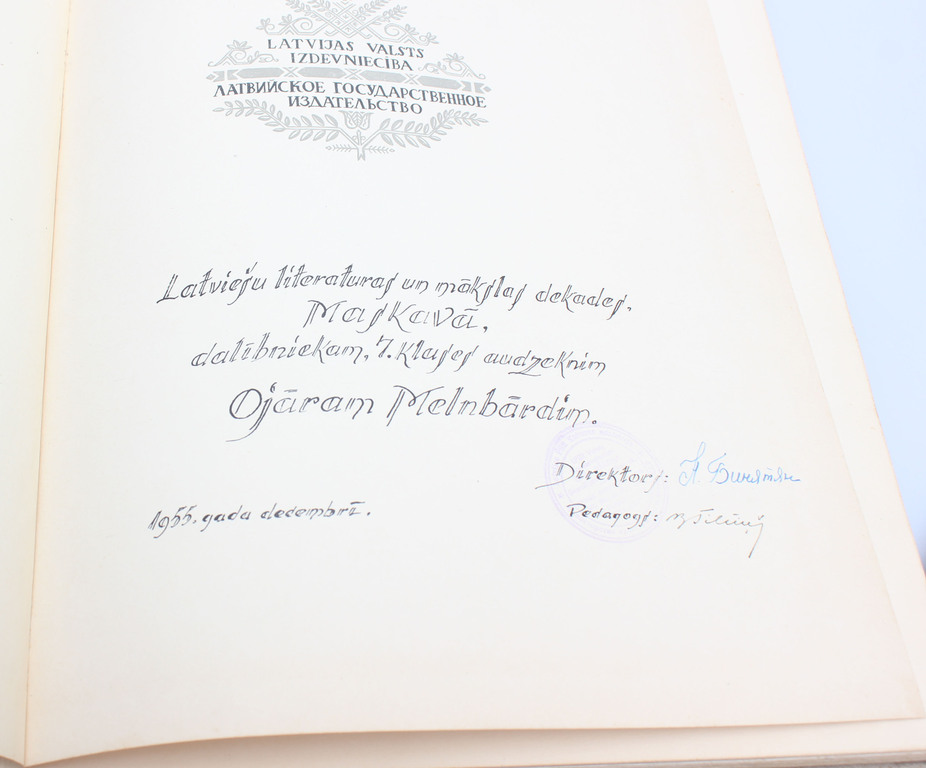 LATVIJAS VALSTS
IZDEVNIECĪBA
ЛАТВИЙСКОЕ ГОСУДАРСТВЕННОЕ
ИЗДАТЕЛЬСТВО
Latviešu literaturas un mākslas dekades,
Maskavā,
dalībniekam, 7. klases audzeknim
Ojāram Melnbārdim.
Direktors:
1955. gada decembrī.
Pedagogs: